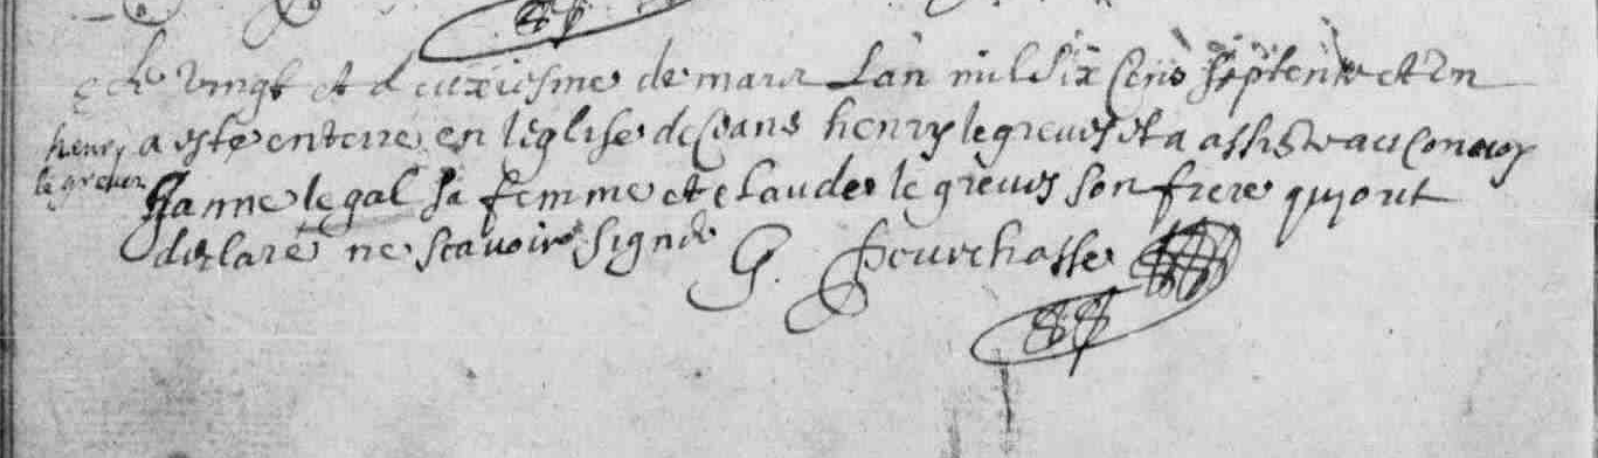 Le vingt et deuxiesme de mars Lan mil Six Cens septente et un
henry
a este enterre en leglise de Ceans henry le greues et a assiste au Convoy
le greues
Janne le gal sa femme et claude le greues son frere qui ont
declare ne scavoir signer G. Pourchasse